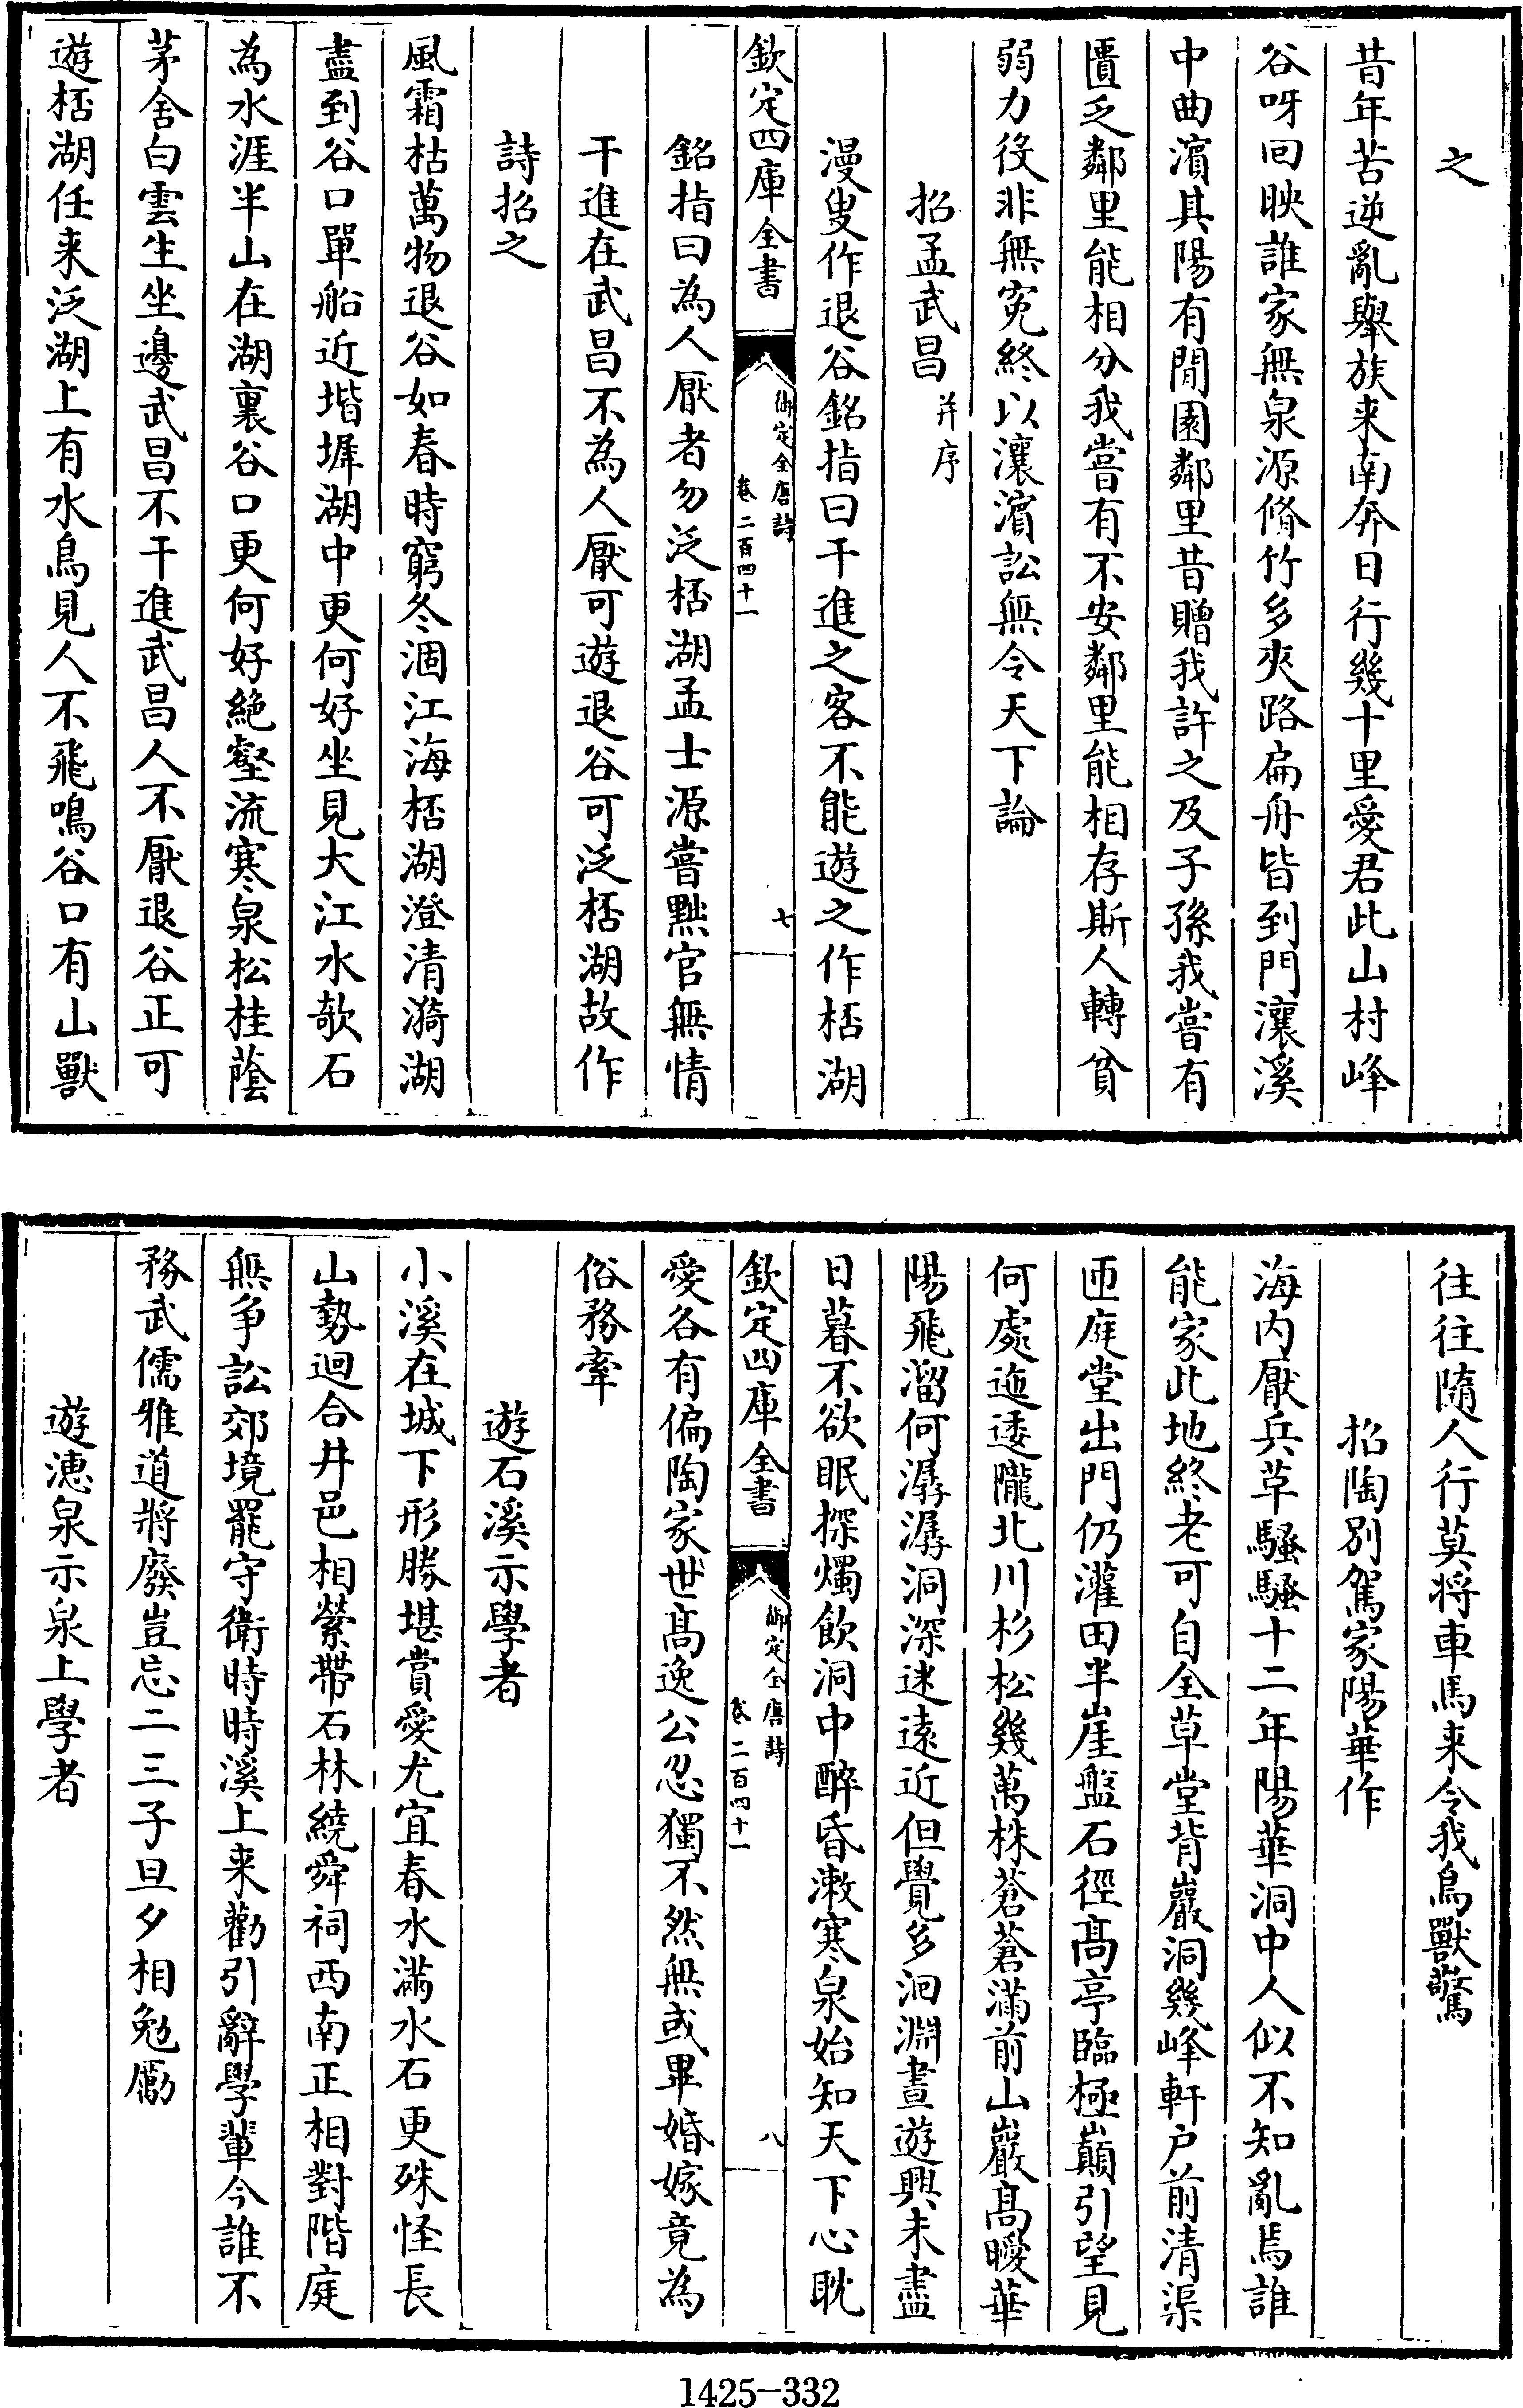 之
昔年苦逆亂舉族来南奔日行幾十里愛君此山村峰
谷呀回映誰家無泉源脩竹多夾路扁舟皆到門瀼溪
中曲濵其陽有閒園鄰里昔贈我許之及子孫我嘗有
匱乏鄰里能相分我嘗有不安鄰里能相存斯人轉貧
弱力役非無寃終以瀼濵訟無令天下論
招孟武昌并序
漫叟作退谷銘指曰干進之客不能遊之作桮湖
欽定四庫全書
御定全唐詩
卷二百四十一
七
銘指曰為人厭者勿泛桮湖孟士源嘗黜官無情
干進在武昌不為人厭可遊退谷可泛桮湖故作
詩招之
風霜枯萬物退谷如春時窮冬涸江海桮湖澄清漪湖
盡到谷口單船近堦墀湖中更何好坐見大江水欹石
為水涯半山在湖裏谷口更何好絶壑流寒泉松桂蔭
茅舍白雲生坐邊武昌不干進武昌人不厭退谷正可
遊桮湖任来泛湖上有水鳥見人不飛鳴谷口有山獸
往往隨人行莫将車馬来令我鳥獸驚
招陶別駕家陽華作
海内厭兵草騷騷十二年陽華洞中人似不知亂焉誰
能家此地終老可自全草堂背巖洞幾峰軒户前清渠
匝庭堂出門仍灌田半崖盤石徑髙亭臨極巔引望見
何處迤逶隴北川杉松幾萬株蒼蒼滿前山巖髙曖華
陽飛溜何潺潺洞深迷逺近但覺多洄淵晝遊興未盡
日暮不欲眠探燭飲洞中醉昏漱寒泉始知天下心耽
欽定四庫全書
御定全唐詩
卷二百四十一
八
愛各有偏陶家世髙逸公忍獨不然無或畢婚嫁竟為
俗務牽
遊石溪示學者
小溪在城下形勝堪賞愛尤宜春水滿水石更殊怪長
山勢迴合井邑相縈帶石林繞舜祠西南正相對階庭
無爭訟郊境罷守衛時時溪上来勸引辭學輩今誰不
務武儒雅道將廢豈忘二三子旦夕相勉勵
遊潓泉示泉上學者
1425-332